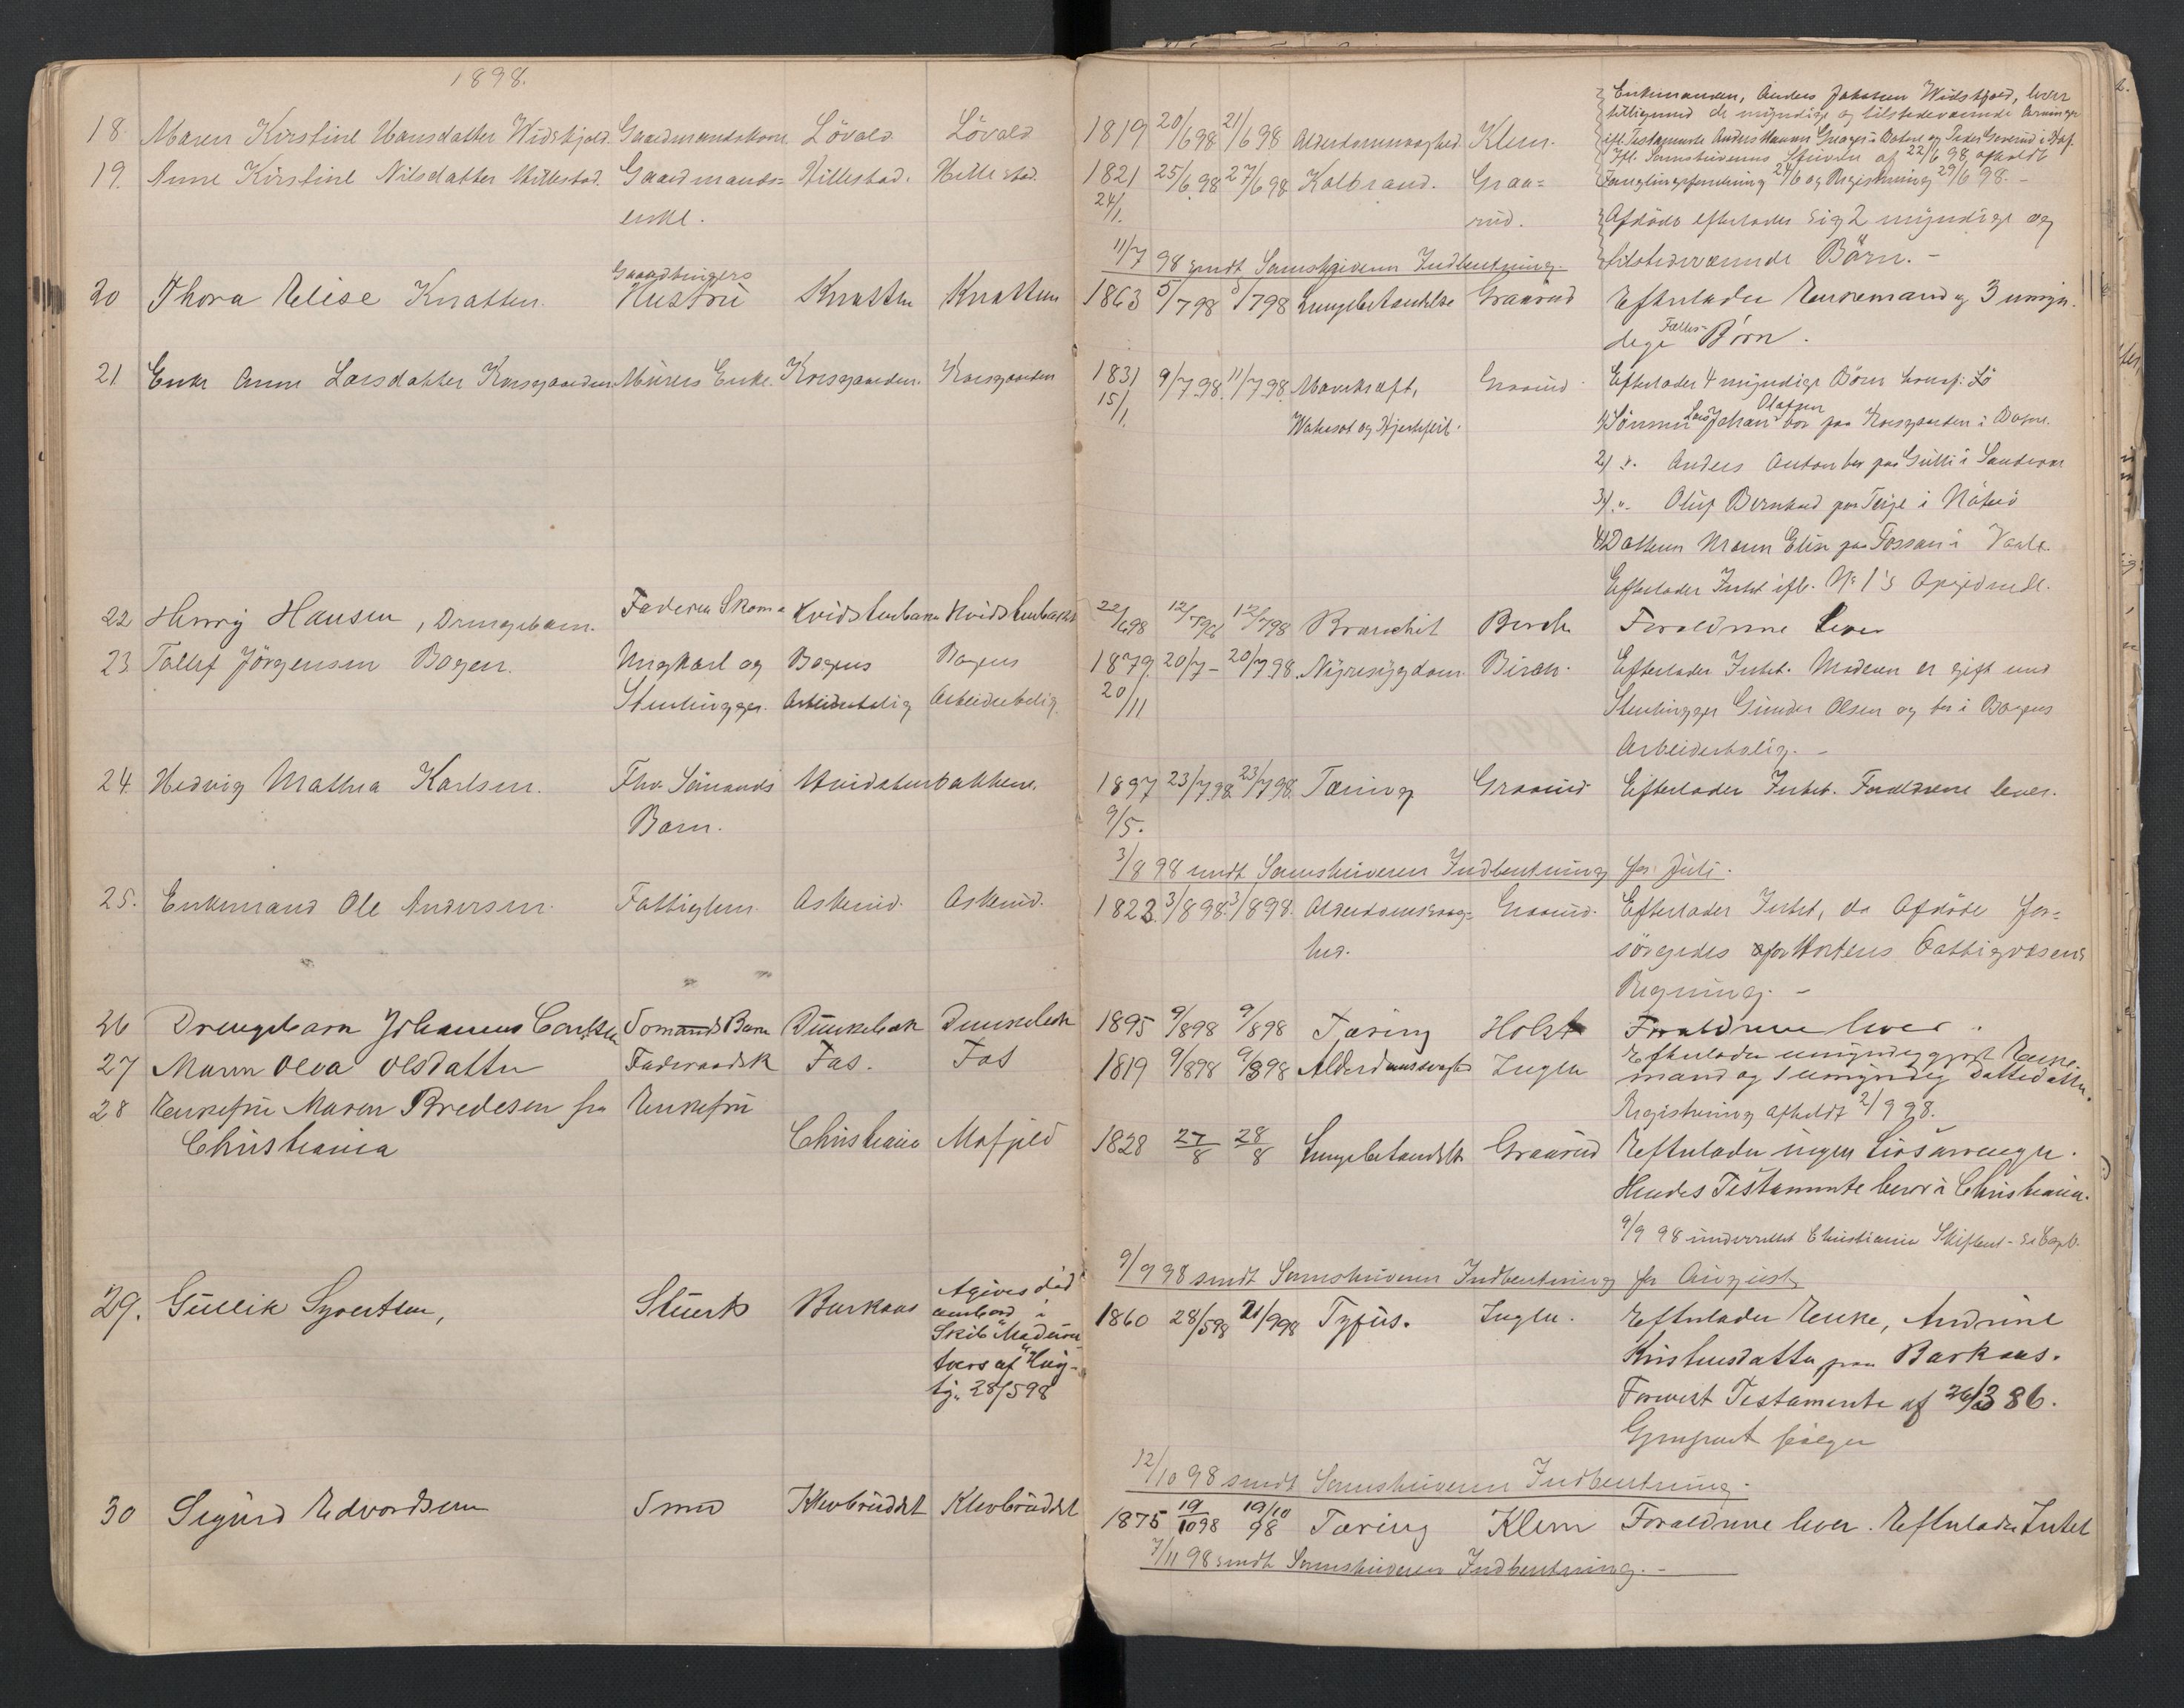 1898.
18 Maren Kirstine Hansdatter Widskjold. Gaardmandskone Lövald Lövald 1819 20/6 98 21/6 98 Alderdomssvaghed Klem.
Enkemanden, Anders Jakobsen Widskjold, lever
tilligemed de myndige og tilstedeværende Arvinge
ifl. Testamente Anders Hansen i Botne og Peder i
Ifl. Sorenskriverens Skrivelse af 22/6 98 afholdt
19. Anne Kirstine Nilsdatter Hillestad. Gaardmands= Hillestad. Hillestad. 1821 25/6 98 27/6 98 Kolbrand. Graa= og Registrering 29/6 98. –
enke. 24/1. rud. Afdöde efterlader sig 2 myndige og
11/7 98 sendt Sorenskriveren Indberetning. tilstedeværende Börn. –
Gaardbrugers
20 Thora Elise Knatten. Hustru Knatten Knatten 1863 5/7 98 5/7 98 Lungebetændelse Graarud Efterlader Enkemand og 3 umyn.
dige Fælles- Börn.
21 Enke Anne Larsdatter Korsgaarden Murers Enke. Korsgaarden. Korsgaarden 1831 9/7 98. 11/7 98. Marvskraft, Graarud. Efterlader 4 myndige Börn
15/1. Watersot og Hjertefeil. 1) Sönnen Lars Johan Olafsen bor paa Korsgaarden i Botne.
2) ". Anders Anton bor paa i Sandevar
3) ."- Oluf Bernhard paa i Nöterö
4) Datteren Maren Elise paa Fossan i Vaale.
Efterlader Intet ifl. No 1's Opgivende.
22 Henry Hansen, Drengebarn. Faderen Skom= Kvidstenbakk Hvidstenbakk 22/6 98 12/7 98 12/7 98 Bronchit Borch Forældrene lever
23 Tollef Jörgensen Bogen. Ungkarl og Bogens Bogens 1879. 20/7 – 20/7 98. Nyresygdom. Birch. Efterlader Intet. Moderen er gift med
Stenhugger. Arbeiderbolig Arbeiderbolig. 20/11 Stenhugger Gunder Olsen og bor i Bogens
Arbeiderbolig. –
24. Hedvig Mathea Karlsen. Fhv. Sömands Hvidstenbakken. 1897 23/7 98. 23/7 98. Tæring Graarud Efterlader Intet. Forældrene lever.
Barn. 9/5.
3/8 98 sendt Sorenskriveren Indberetning for Juli.
25. Enkemand Ole Andersen. Fattiglem. Askerud. Askerud. 1822. 3/8 98. 3/8 98. Alderdomssvag= Graarud. Efterlader Intet, da Afdöde for=
hed. sörgedes for Hortens Fattigvæsens
Regning. –
26 Drengebarn Johannes Carlsen Sömands Barn Dunkebæk Dunkebæk 1895 9/8 98 9/8 98 Tæring Holst Forældrene lever.
27 Maren Olea Olsdatter Föderaadsk Fas. Fas 1819 9/8 98 9/8 98 Alderdomssvaghed Ingen Efterlader umyndiggjort Enke
mand og 1 umyndig Datterdatter.
28 Enkefru Maren Bredesen fra Enkefru Registrering afholdt 2/9 98.
Christiania Christiania Mofjeld 1828 27/8 28/8 Lungebetændelse Graarud Efterlader ingen Livsarvinger.
Hendes Testamente beror i Christiania.
9/9 98 underrettet Christiania Skifteret
9/9 98 sendt Sorenskriveren Indberetning for August
29. Gullik Syvertsen, Stuert Barkaas Agives död ombord i Skib "Madeira" tvers af 28/5 98 1860 28/5 98 21/9 98 Tyfus. Ingen. Efterlader Enke, Andrine
Kristensdatter paa Barkaas.
Testamente af 26/3 86.
Gjenpart følger
12/10 98 sendt Sorenskriveren Indberetning.
30 Sigurd Edvardsen Smed Klevbruddet Klevbruddet 1875 19/10 98 19/10 98 Tæring Klem Forældrene lever. Efterlader Intet
7/11 98 sendt Sorenskriveren Indberetning. –